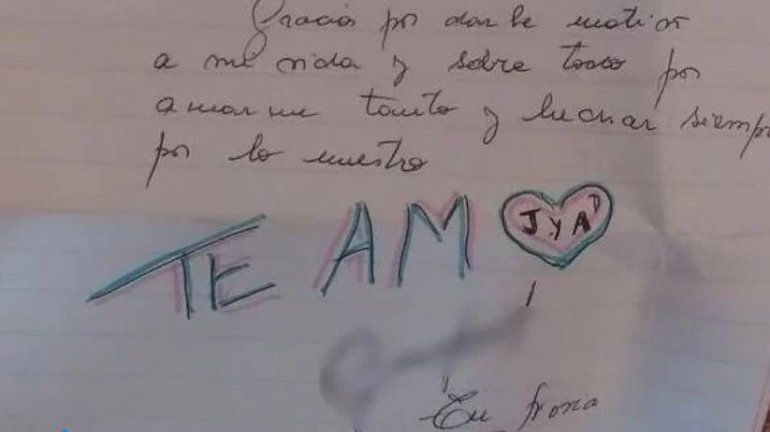 Gracias por darle motivos
a mi vida y sobre todo por
amarme tanto y luchar siempre
por lo nuestro
TE AM
J y A